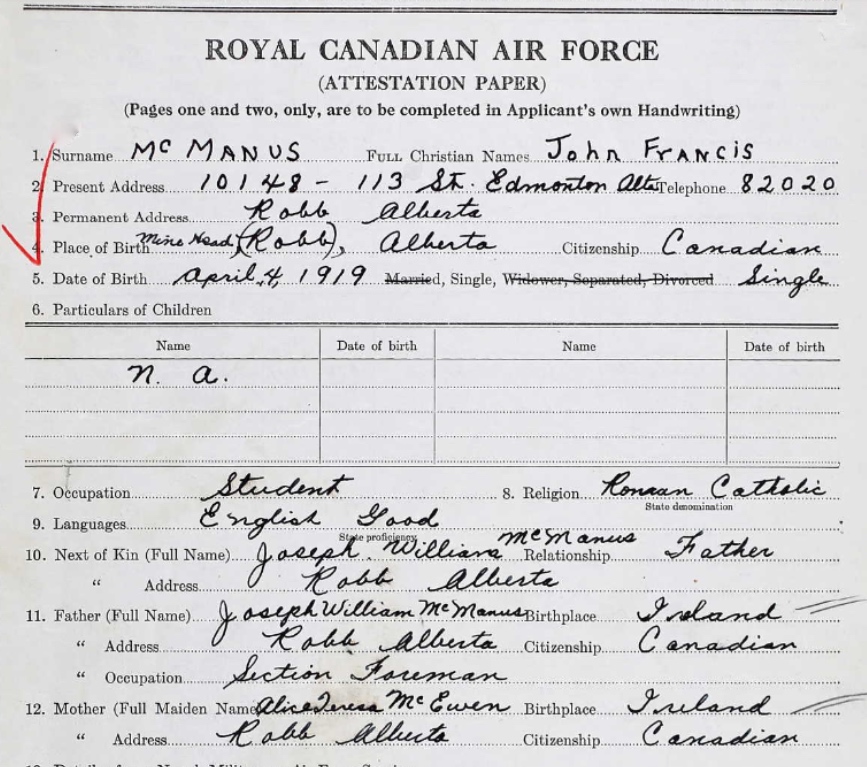 ROYAL CANADIAN AIR FORCE
(ATTESTATION PAPER)
(Pages one and two, only, are to be completed in Applicant's own Handwriting)
1. Surname Mc MANUS FULL Christian Names John FRANCIS
2. Present Address 10148 - 113 St. Edmonton Alta Telephone 82020
3. Permanent Address Robb Alberta
4. Place of Birth Mine Head, (Robb), Alberta Citizenship Canadian
5. Date of Birth April, 4, 1919 Married, Single, Widower, Separated, Divorced Single
6. Particulars of Children
Name Date of birth Name Date of birth
N. A.
7. Occupation Student 8. Religion Roman Catholic
State denomination
9. Languages English Good
State proficiency
10. Next of Kin (Full Name) Joseph William McManus Relationship Father
" Address Robb Alberta
11. Father (Full Name) Joseph William McManus Birthplace Ireland
" Address Robb Alberta Citizenship Canadian
" Occupation Section Foreman
12. Mother (Full Maiden Name Alice Teresa McEwen Birthplace Ireland
" Address Robb Alberta Citizenship Canadian